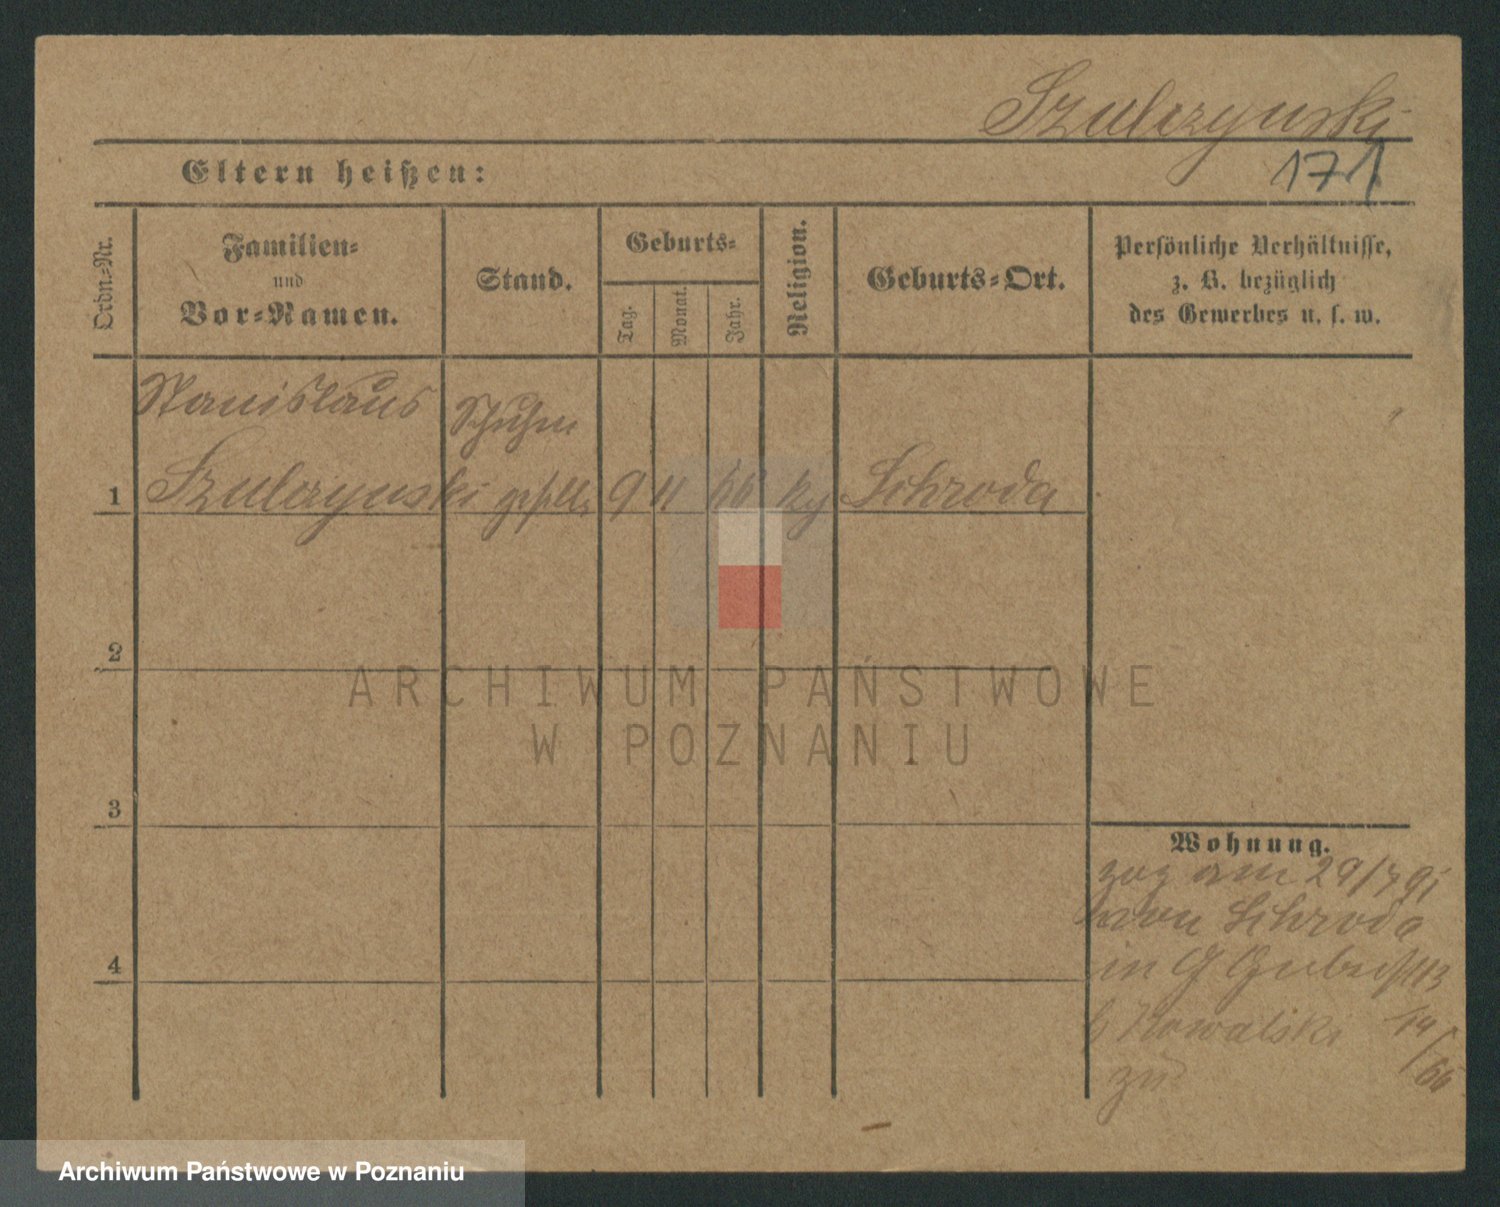 Szulczynski
171
Eltern heißen:
Ordn.-Nr.
Familien-
und
Vor-Namen.
Stand.
Geburts-
Tag.
Monat.
Jahr.
Religion.
Geburts-Ort.
Persönliche Verhältnisse,
z. B. bezüglich
des Gewerbes u. s. w.
Stanislaus Schuhm
1 Szulczynski geselle 9 11 66 Schroda
2
3
4
Wohnung.
zog am 29/7 91
von Schroda
in
Kowalski 14/66
zu
ARCHIWUM PAŃSTWOWE
W POZNANIU
Archiwum Państwowe w Poznaniu